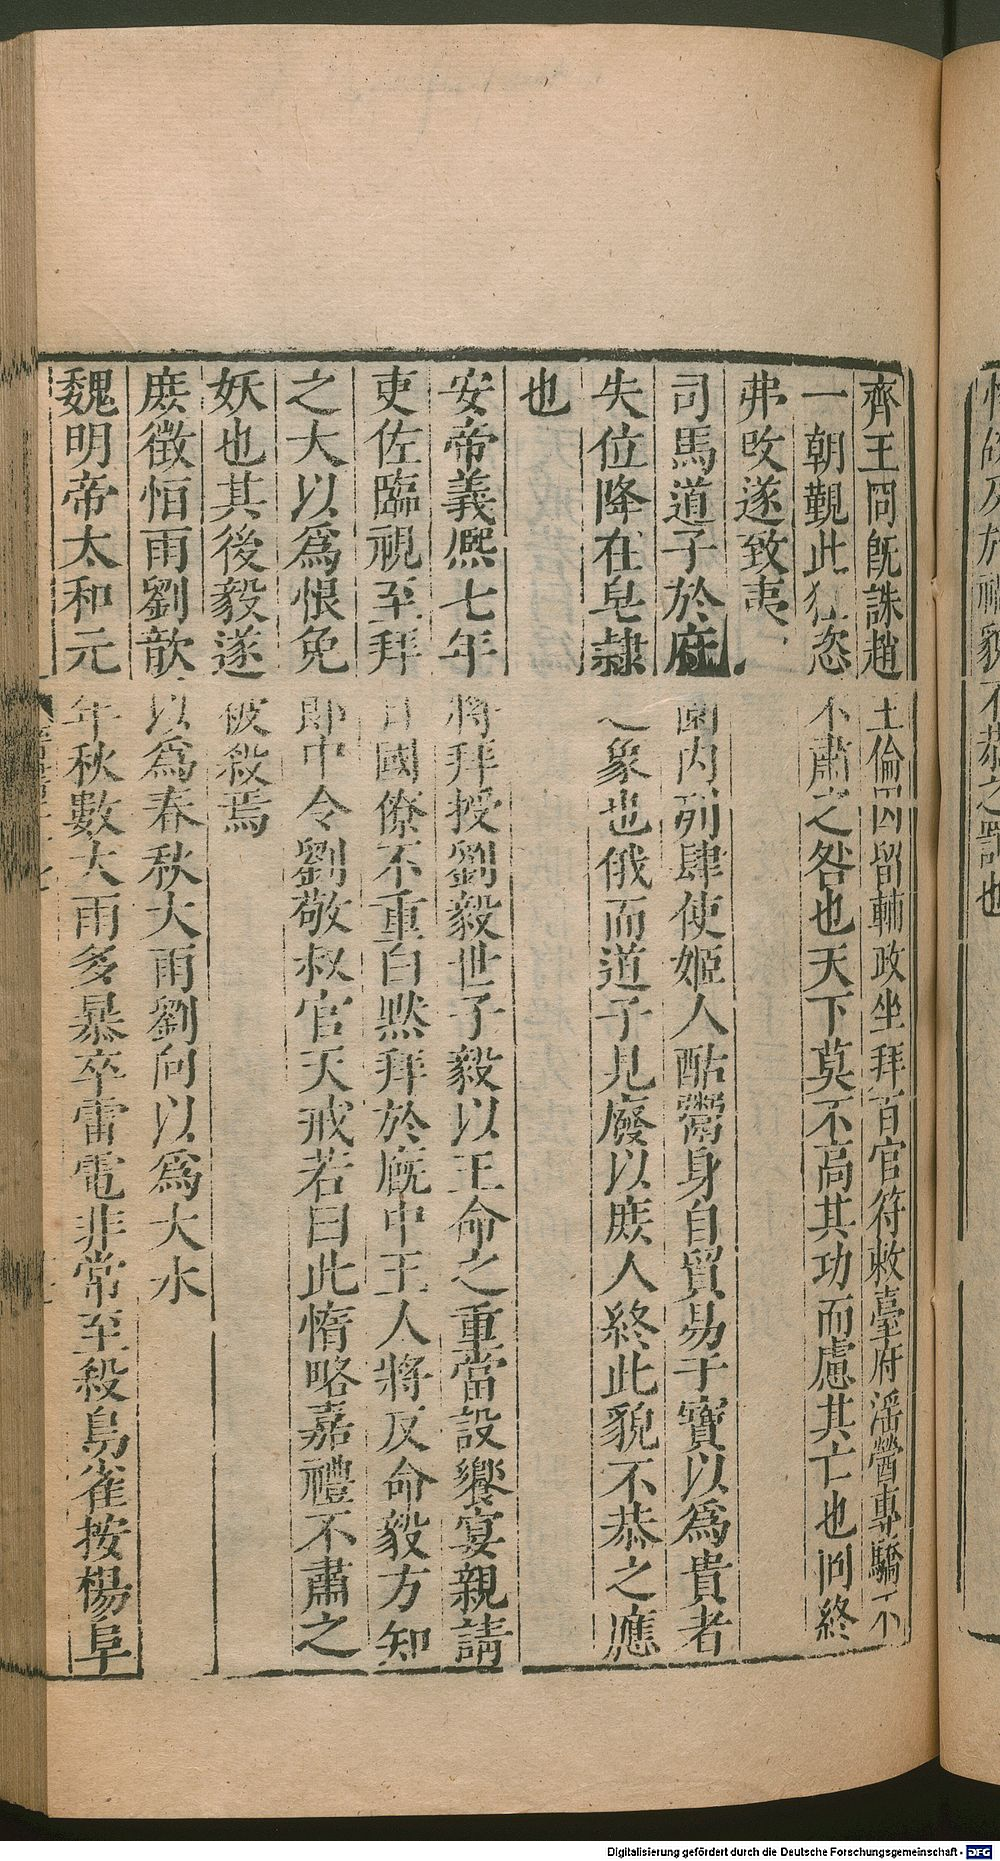 齊王冏旣誅趙王倫因留輔政坐拜百官符敕臺府淫醟專驕不
一朝覲此狂恣不肅之咎也天下莫不高其功而慮其亡也冏終
弗攺遂致夷
司馬道子於府園內列肆使姬人酤鬻身自貿易干寶以爲貴者
失位降在皂隸之象也俄而道子見廢以庻人終此貌不恭之應
也
安帝義熈七年將拜授劉毅世子毅以王命之重當設饗宴親請
吏佐臨視至拜日國僚不重白默拜於廐中王人將反命毅方知
之大以爲恨免郎中令劉敬叔官天戒若曰此惰略嘉禮不肅之
妖也其後毅遂被殺焉
庻徵恒雨劉歆以爲春秋大雨劉向以爲大水
魏明帝太和元年秋數大雨多暴卒雷電非常至殺鳥雀按楊阜
不恭之罰也
Digitalisierung gefördert durch die Deutsche Forschungsgemeinschaft - DFG